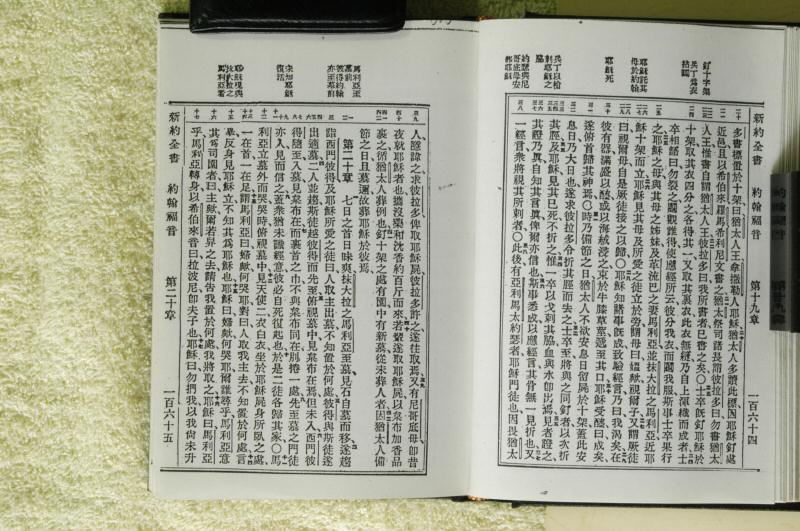 釘十字架
兵丁爲衣
拈鬮
耶穌託其
母於約翰
耶穌死
兵丁以槍
刺耶穌之
脇
約瑟與尼
哥底母安
葬耶穌
新約全書 約翰福音 第十九章 一百六十四
多書標置於十架曰猶太人王拿撒勒人耶穌猶太人多讀此標因耶穌釘處
近邑且以希伯來羅馬希利尼文書之猶太祭司諸長謂彼拉多曰勿書猶太
人王惟書自謂猶太人王彼拉多曰我所書者已書之矣〇士卒旣釘耶穌於
十架取其衣四分之各得其一又取其裏衣此衣無縫乃自上渾織而成者士
卒相語曰勿裂之鬮觀誰得使應經所云彼分我衣而鬮我服斯事士卒果行
之耶穌之母與其母之姊妹及革流巴之妻馬利亞並抹大拉之馬利亞近耶
穌十架而立耶穌見其母及所愛之徒立於旁謂母曰媼歟視爾子又謂厥徒
曰視爾母自是厥徒接之以歸〇耶穌知諸事旣成致驗經言乃曰我渴矣在
彼有器滿盛以醯或以海絨浸之束於牛膝草至其口耶穌受醯曰成矣
遂俯首歸其神焉〇時乃備節之日猶太人不欲安息日留屍於十架蓋此安
息日乃大日也遂求彼拉多令折其脛而去之士卒至將與之同釘者以次折
其脛及耶穌見其已死不折之惟一卒以戈刺其脇血與水卽出焉見者證之
其證乃眞自知其言眞俾爾亦信也斯事悉成以應經言其骨無一見折也又
一經言衆將視其所刺者〇此後有亞利馬太約瑟者耶穌門徒也因畏猶太
馬利亞至
墓前
彼得約翰
亦至墓前
未知耶穌
復活
耶穌現與
抹大拉之
馬利亞看
新約全書 約翰福音 第二十章 一百六十五
人隱諱之求彼拉多俾取耶穌屍彼拉多許之遂往取焉又有尼哥底母卽昔
夜就耶穌者也攜沒藥和沈香約百斤而來若輩遂取耶穌屍以枲布加香品
裹之循猶太人葬例也釘十架之處有園中有新墓從未葬人者因猶太人備
節之日且墓邇故葬耶穌於彼焉
第二十章 七日之首日昧爽抹大拉之馬利亞至墓見石自墓而移遂趨
詣西門彼得及耶穌所愛之徒曰人取主出墓不知置於何處彼得與斯徒遂
出適墓二人並趨斯徒越彼得而先至俯視墓中見枲布在焉但未入西門彼
得隨至入墓見枲布在而裹首之巾不與枲布同在別捲一處先至墓之門徒
亦入見而信之蓋衆猶未識經意彼必自死復起也於是二徒各歸其家〇馬
利亞立墓外而哭哭時俯視墓中見天使二衣白衣坐於耶穌屍身所臥之處
一在首一在足謂馬利亞曰婦歟何哭耶對曰人取我主去不知置於何處言
畢反身見耶穌立不知其爲耶穌也耶穌曰婦歟何哭耶爾誰尋乎馬利亞意
其爲司園者曰主歟爾若舁之去請告我置於何處我將取之耶穌曰馬利亞
乎馬利亞轉身以希伯來音曰拉波尼卽夫子也耶穌曰勿捫我以我尙未升